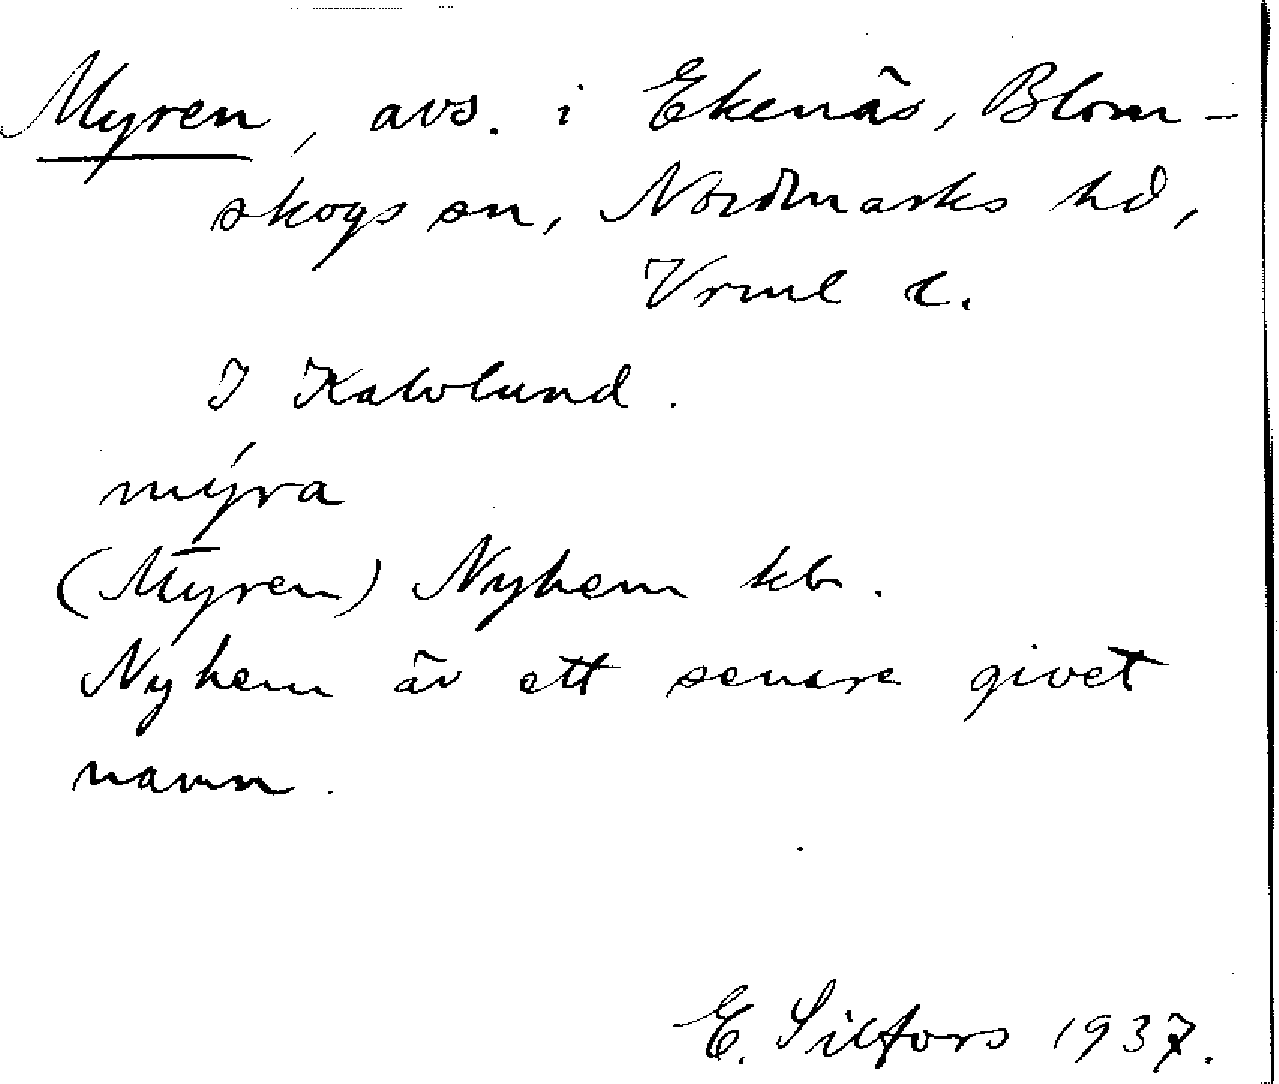 Myren, avs. i Ekenäs, Blom-
skogs sn, Nordmarks hd,
Vrml l.
I Kalvlund.
mýra
(Myren) Nyhem kbr.
Nyhem är ett senare givet
namn.
E. Silfors 1937.